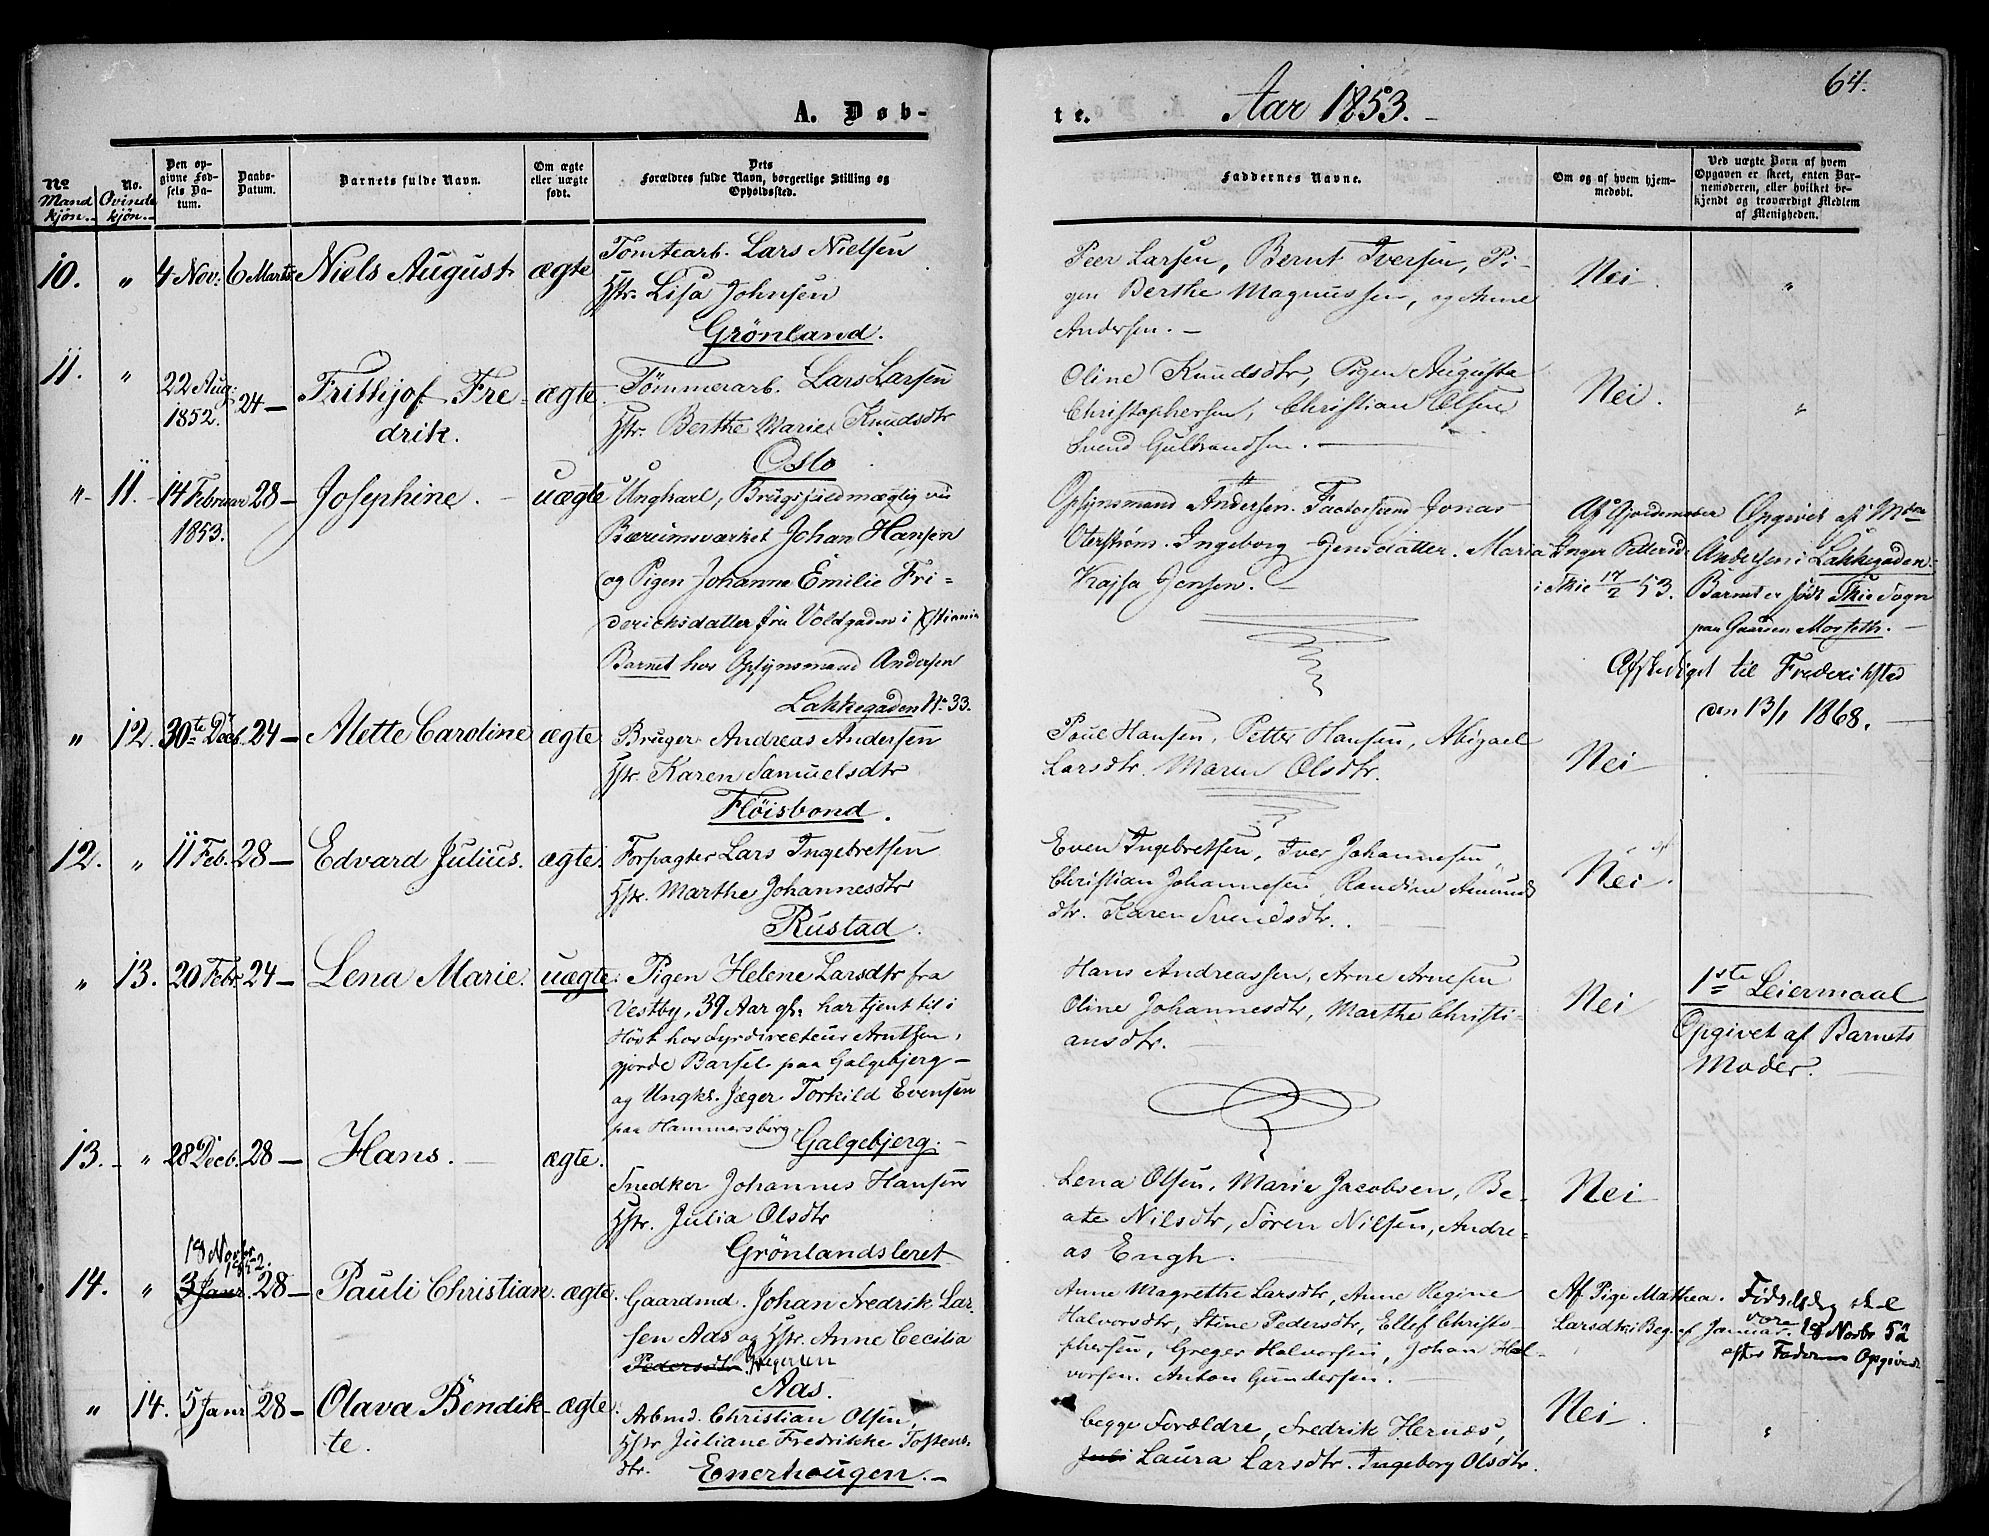 A. Døb-
te. Aar 1853.
64.
No Mand kjön.
No. Qvinde kjön.
Den op-
givne Fød-
sels Da-
tum.
Daabs-
Datum.
Barnets fulde Navn.
Om ægte
eller uægte
født.
Dets
Forældres fulde Navn, borgerlige Stilling og
Opholdssted.
Faddernes Navne.
Om og af hvem hjem-
medøbt.
Ved uægte Børn af hvem
Opgaven er skeet, enten Bar-
nemoderen, eller hvilket be-
kjendt og troværdigt Medlem
af Menigheden.
10. " 4 Nov. 6 Marts Niels August ægte
Tomtearb. Lars Nielsen
Hstr. Lisa Johnsen
Grönland.
Peer Larsen, Bernt Iversen, Pi-
gen Berthe Magnussen, og Anne
Andersen. —
Nei. "
11. " 22 Aug. 1852. 24 — Frithjof Fre-
drik. ægte
Tömmerarb. Lars Larsen
Hstr. Berthe Marie Knudsdtr
Oslo
Oline Knudsdtr, Pigen Auguste
Christophersen, Christian Olsen
Svend Gulbrandsen. —
Nei. "
" 11. 14 Februar 1853. 28 — Josephine. — uægte
Ungkarl, Brugsfuldmægtig ved
Bærumsværket Johan Hansen
og Pigen Johanne Emilie Fri-
derichsdatter fra Voldgaden i Xstiania
Barnet hos Opsynsmand Andersen
Lakkegaden No 33.
Opsynsmand Andersen. Factorsvend Jonas
Oterstrøm. Ingeborg Jensdatter. Maria
Kajsa Jensen.
Af Gjordemoder
Inger Pettersd.
i Skie 17/2 53.
Opgivet af Mdm
Andersen i Lakkegaden.
Barnet er født Skie Sogn
paa Gaarden Morteth. —
Afskediget til Frederikstad
den 13/1 1868. —
" 12. 30te Decb. 24 — Alette Caroline ægte
Bruger Andreas Andersen
Hstr. Karen Samuelsdtr
Flöisbond.
Poul Hansen, Petter Hansen, Abigael
Larsdtr. Maren Olsdtr.
Nei
12. " 11 Feb. 28 — Edvard Julius. ægte.
Forpagter Lars Ingebretsen
Hstr. Marthe Johannesdtr
Rustad.
Even Ingebretsen, Iver Johannesen,
Christian Johannesen, Randine Amunds
dtr. Karen Svendsdtr.
Nei.
" 13. 20 Febr. 24 — Lena Marie. uægte.
Pigen Helene Larsdtr fra
Vestby, 39 Aar gl. har tjent til i
Höst hos Fyrdirecteur Arntzen,
gjorde Barsel paa Galgebjerg —
og Ungk. Jæger Torkild Evensen
paa Hammersborg.
Galgebjerg. —
Hans Andreassen, Arne Arnesen
Oline Johannesdtr, Marthe Christi-
ansdtr.
Nei
1ste Leiermaal
Opgivet af Barnets
Moder.
13. " 28 Decb. 28 — Hans. — ægte.
Snedker Johannes Hansen
Hstr. Julia Olsdtr
Grönlandsleret
Lena Olsen, Marie Jacobsen, Be-
ate Nilsdtr, Sören Nilsen, Andre-
as Engh.
Nei
18 Novbr 1852.
14. " 3 Janr. 28 — Pauli Christian. ægte.
Gaardmd. Johan Fredrik Lar-
sen Aas og Hstr. Anne Cecilia
Pedersdtr Gregersen
Aas.
Anne Magrethe Larsdtr, Anne Regine
Halvorsdtr, Stine Pedersdtr, Ellef Christo-
phersen, Greger Halvorsen, Johan Hal-
vorsen. Anton Gundersen.
Af Pige Mathea
Larsdtr i Beg. af Januar.
Fødselsdag skal
være 18 Novbr 52
efter Faderens Opgivende
" 14. 5 Janr 28 — Olava Bendik-
te. ægte.
Arbmd. Christian Olsen,
Hstr Juliane Fredrikke Tostens-
dtr. Enerhougen. —
begge Forældre, Fredrik Hernæs,
Juli Laura Larsdtr. Ingeborg Olsdtr.
Nei. "